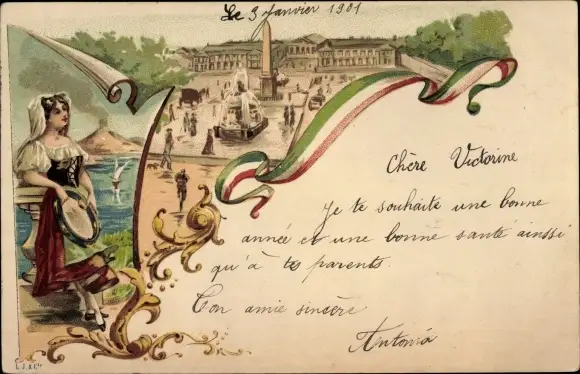 Le 3 Janvier 1901
Chère Victorine
Je te souhaite une bonne
année et une bonne santé ainsi
qu'à tes parents.
Ton amie sincère
Antonia